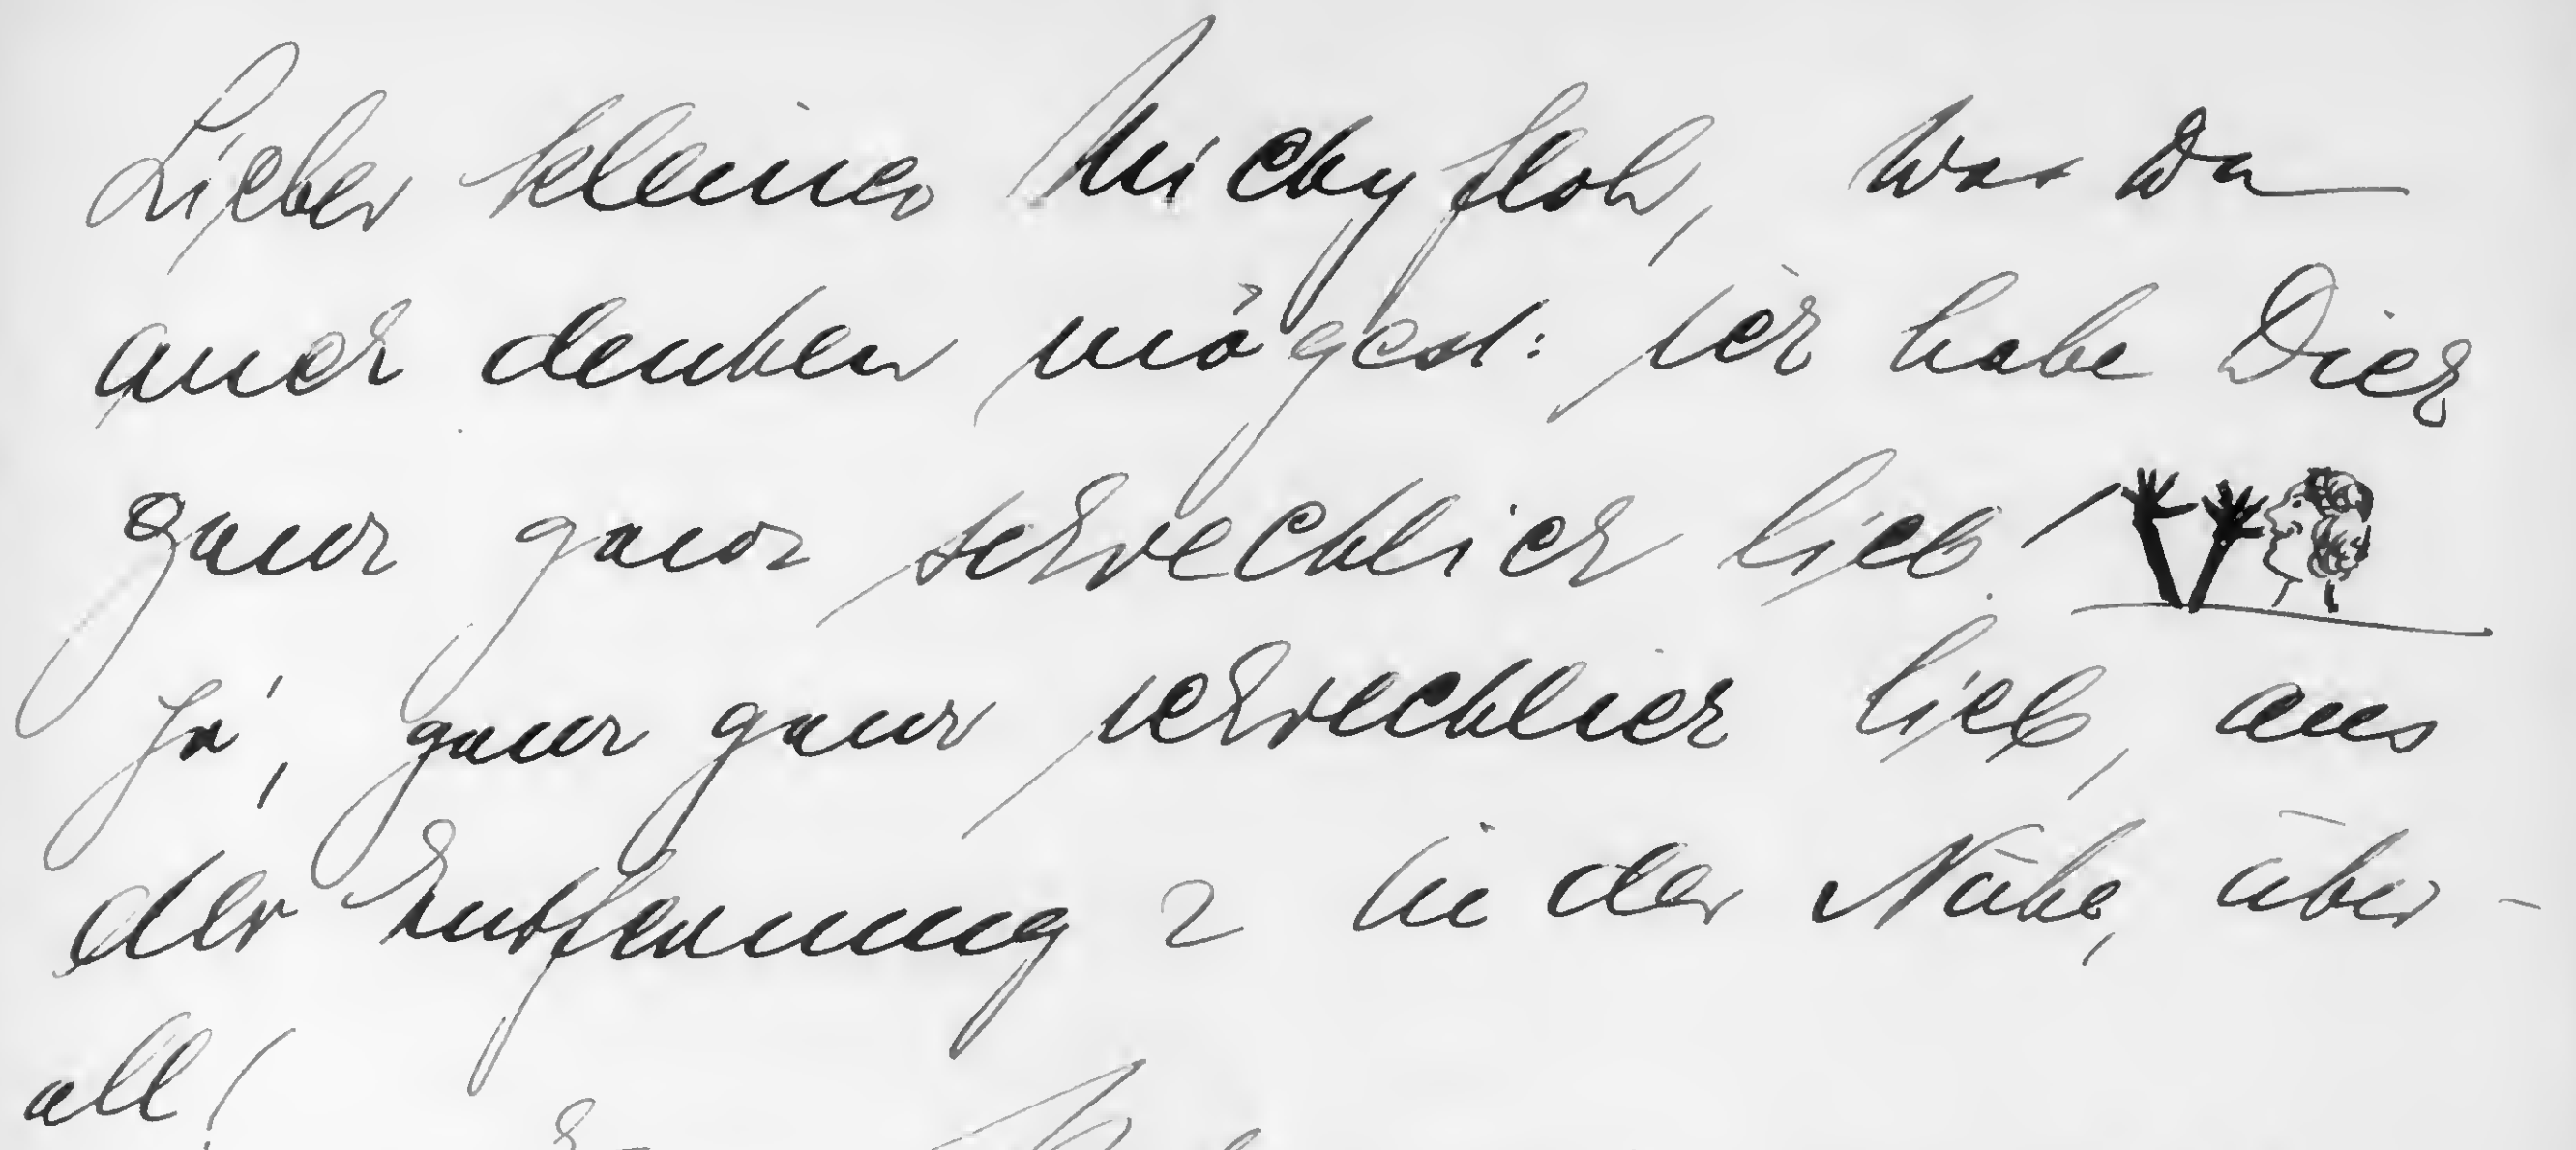 Lieber kleiner Micky floh, was Du
auch denken mögest: ich habe Dich
ganz ganz schrecklich lieb!
Ja, ganz ganz schrecklich lieb, aus
der Entfernung & in der Nähe, über-
all!